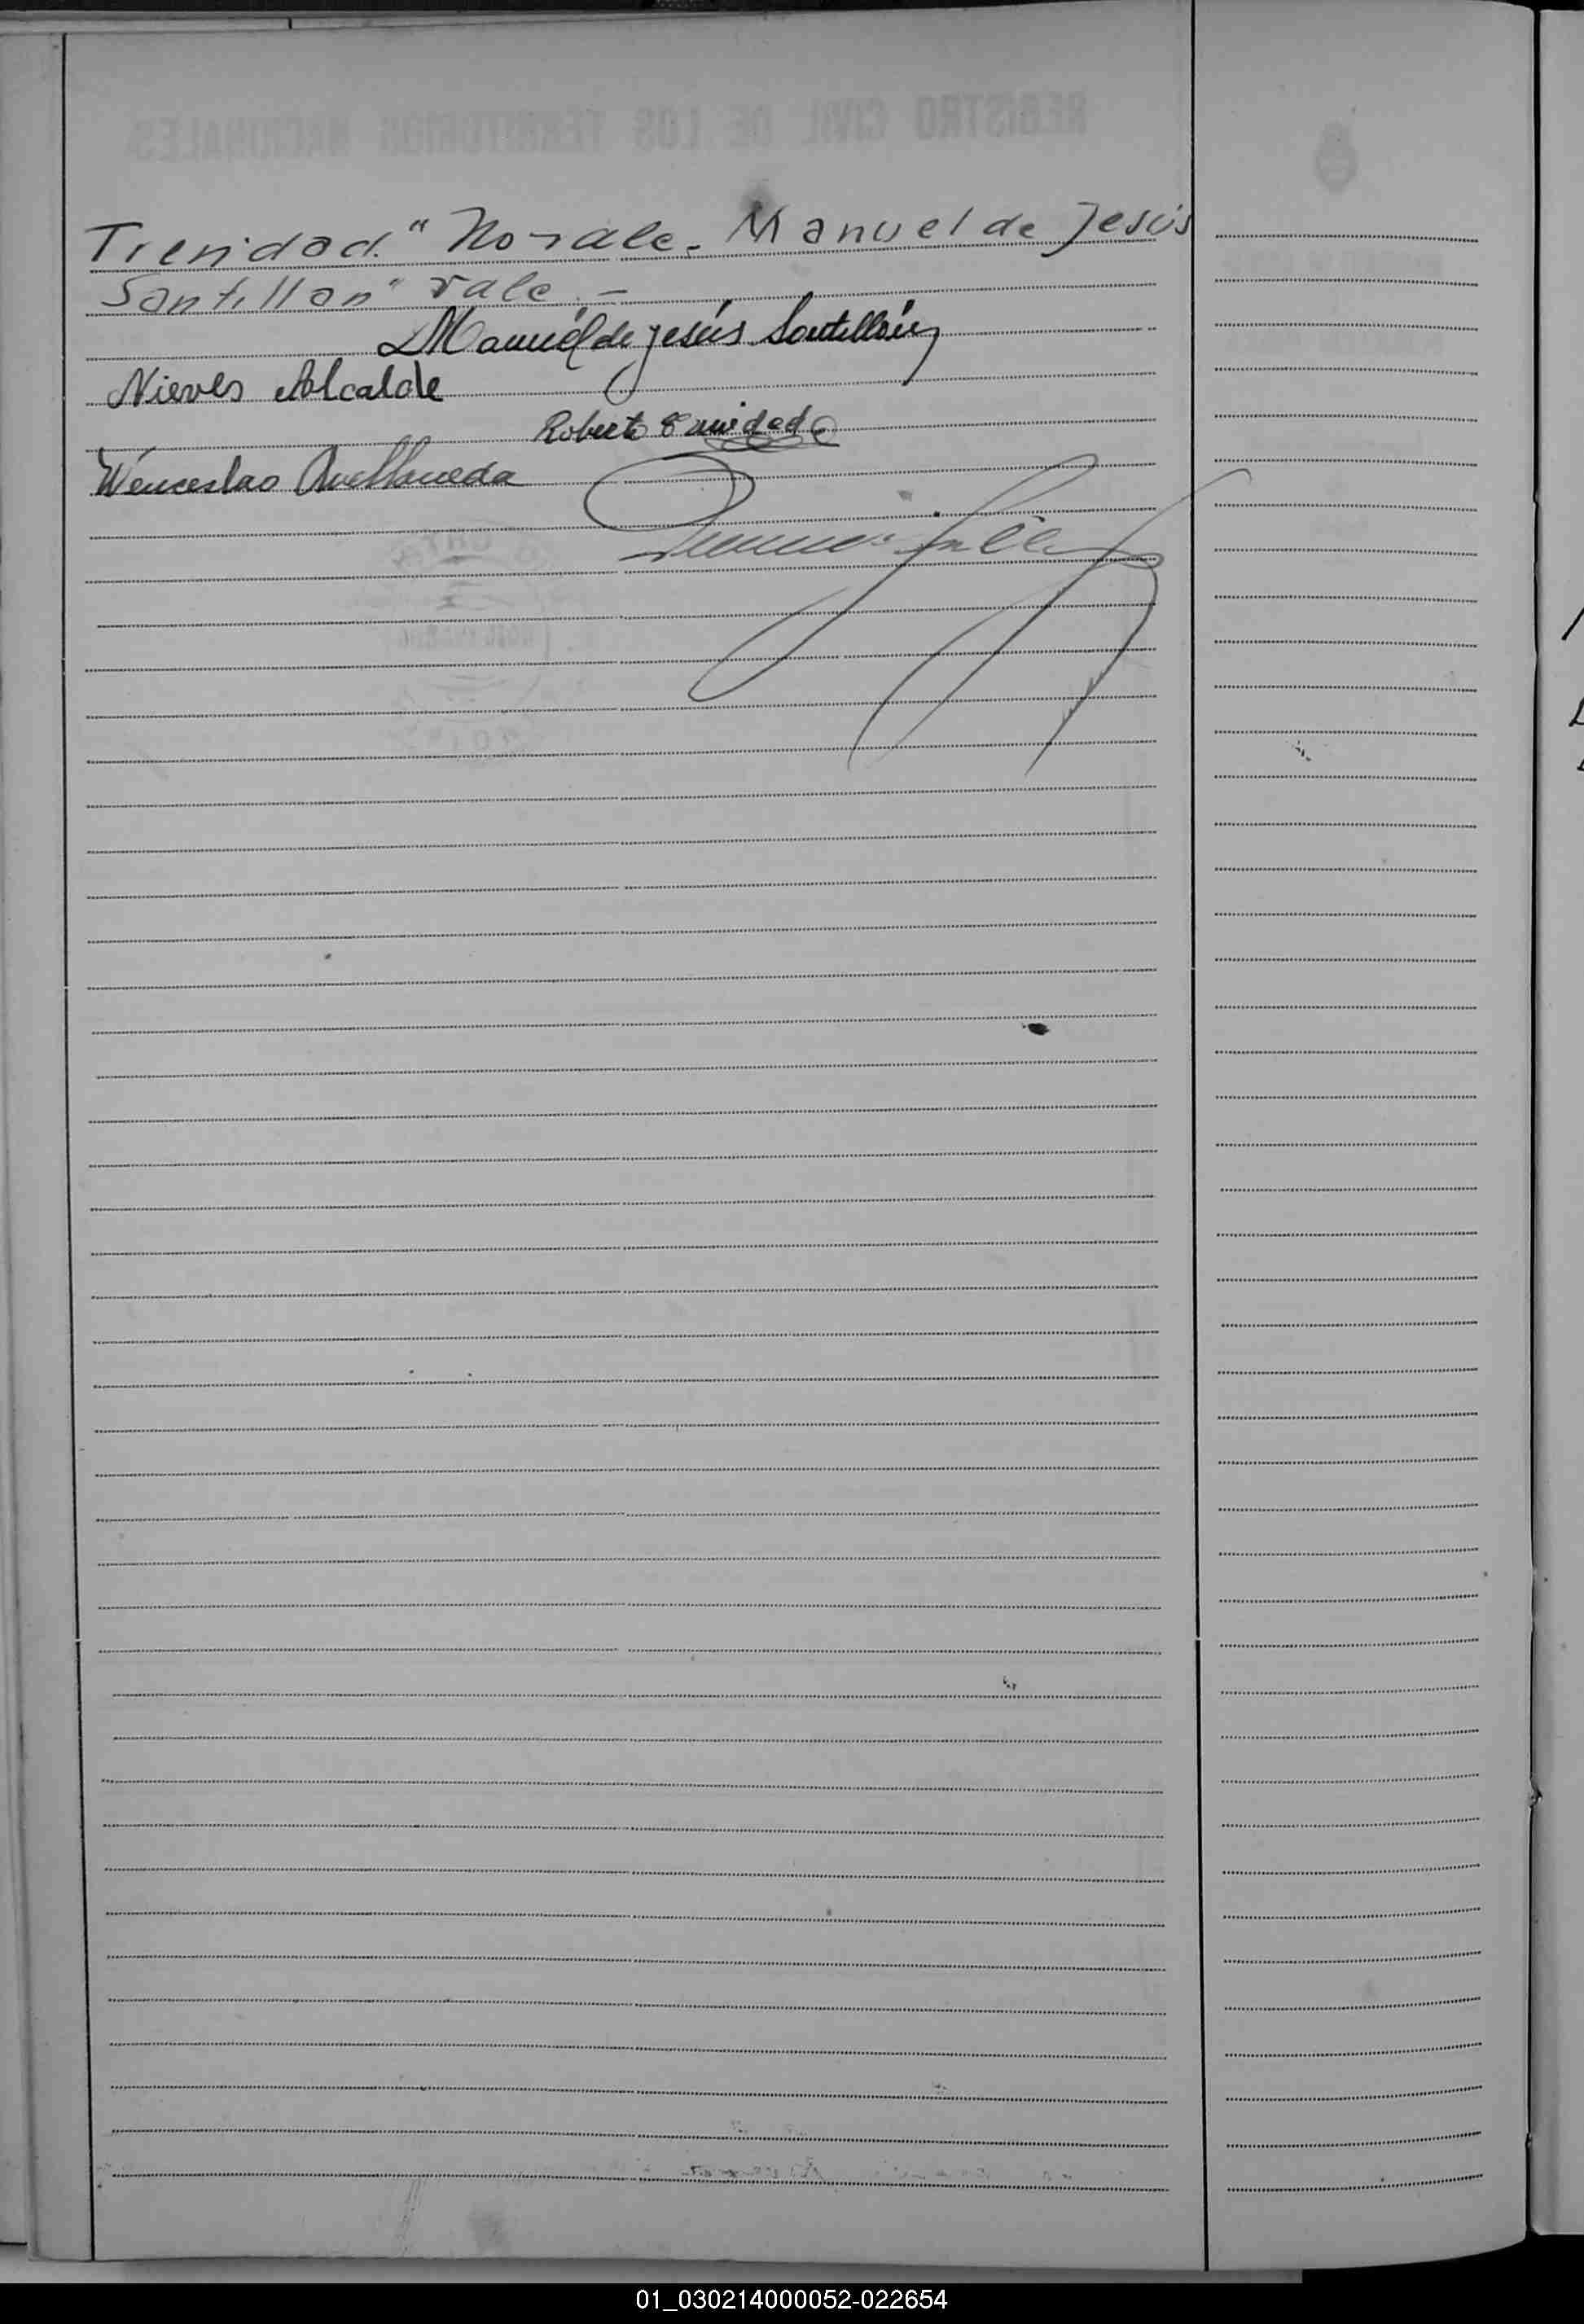 Trenidad." No vale. Manuel de Jesús
Santillan" vale. -
Manuél de Jesús Santillán
Nieves Alcalde
Roberto
Wenceslao Avellaneda
01_030214000052-022654